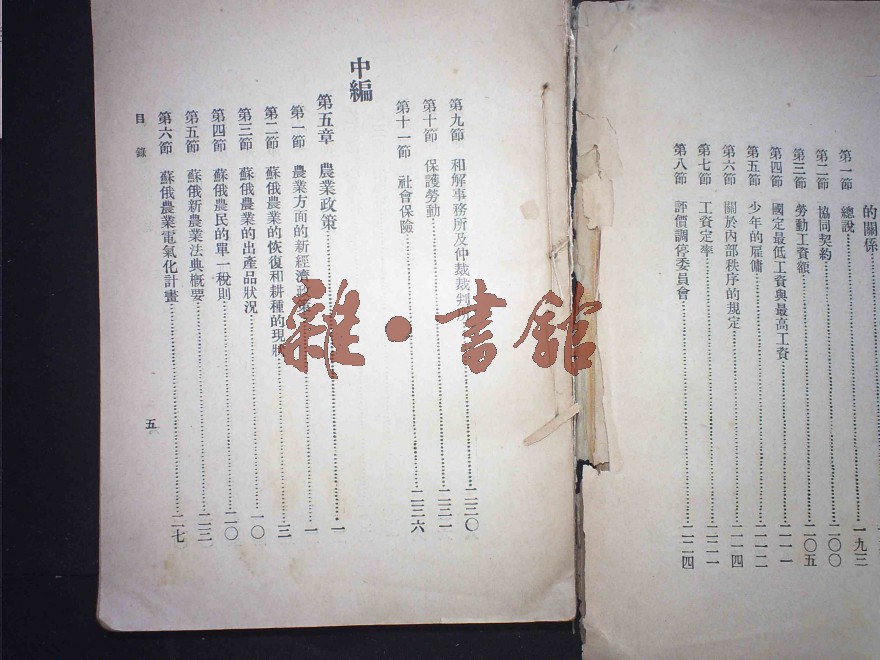 的關係
第一節　總說……一九三
第二節　協同契約……二〇〇
第三節　勞動工資額……二〇五
第四節　國定最低工資與最高工資……二一一
第五節　少年的雇傭……二一二
第六節　關於內部秩序的規定……二一四
第七節　工資定率……二二一
第八節　評價調停委員會……二二四
第九節　和解事務所及仲裁裁判……二三〇
第十節　保護勞動……二三一
第十一節　社會保險……二三六
中編
第五章　農業政策……一
第一節　農業方面的新經濟政策……一
第二節　蘇俄農業的恢復和耕種的現狀……三
第三節　蘇俄農業的出產品狀況……一〇
第四節　蘇俄農民的單一稅則……二〇
第五節　蘇俄新農業法典概要……二三
第六節　蘇俄農業電氣化計畫……二七
目錄
五
雜·書館